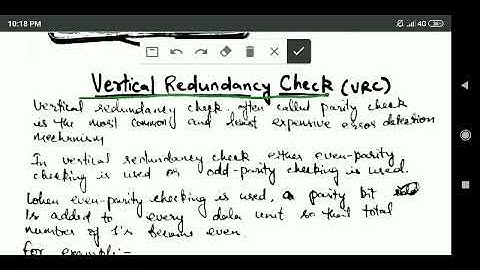 10:18 PM
40 28
Vertical Redundancy Check (VRC)
Vertical redundancy check, often called parity check
is the most common and least expensive error detection
mechanism
In vertical redundancy check either even-parity
checking is used or odd-parity checking is used.
When even-parity checking is used, a parity bit
is added to every data unit so that total
number of 1's become even.
for example:-